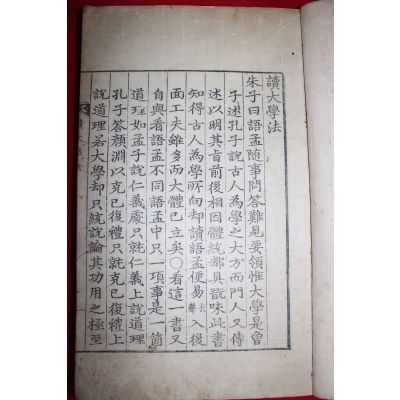 讀大學法
朱子曰語孟隨事問答難見要領惟大學是曾
子述孔子說古人為學之大方而門人又傳
述以明其旨前後相因體統都具翫味此書
知得古人為學所向却讀語孟便易去聲入後
面工夫雖多而大體已立矣○看這一書又
自與看語孟不同語孟中只一項事是一箇
道理如孟子說仁義處只就仁義上說道理
孔子答顏淵以克己復禮只就克己復禮上
說道理若大學却只統說論其功用之極至